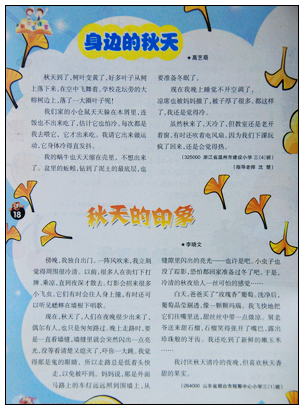 身边的秋天
高艺萌
秋天到了,树叶变黄了,好多叶子从树
上落下来,在空中飞舞着。学校花坛旁的大
榕树边上,落了一大圈叶子呢!
我们家的小仓鼠天天躲在木屑里,连
饭也不出来吃了。估计它也怕冷,每次都是
我去喂它,它才出来吃。我请它出来做运
动,它身体冷得直发抖。
我的蜗牛也天天缩在壳里,不想出来
了。这里的蚯蚓,钻到了泥土的最底层,也
要准备冬眠了。
现在我晚上睡觉不开空调了,
凉席也被妈妈撤了,被子厚了很多,都这样
了,我还是觉得冷。
虽然秋来了,天冷了,但教室还是老开
着窗,有时还吹着电风扇,因为我们下课玩
疯了回来,还是会觉得热。
(325000 浙江省温州市建设小学 三(4)班)
(指导老师 沈 慧)
18
秋天的印象
李晓文
傍晚,我独自出门,一阵风吹来,我立刻
觉得周围很冷清。以前,很多人在街灯下打
牌、乘凉,直到夜深才散去。灯影会招来很多
小飞虫,它们有时会往人身上撞,有时还可
以听见蟋蟀在墙根下唱歌。
现在,秋天了,人们在夜晚很少出来了,
偶尔有人,也只是匆匆路过。晚上走路时,要
是一直看墙缝,墙缝里就会突然闪出一点亮
光,没等看清楚又熄灭了,吓你一大跳。我觉
得那是鬼的眼睛。所以走路总是低着头快
走,以免被吓到。妈妈说,那是外面
马路上的车灯远远照到围墙上,从
缝隙里闪出的亮光——也许是吧。小虫子也
没了踪影,恐怕都回家准备过冬了吧。于是,
冷清的秋夜给人一丝可怕的感觉……
白天,爸爸买了“玫瑰香”葡萄,洗净后,
葡萄晶莹剔透,像一颗颗玛瑙。我飞快地把
它们往嘴里送,甜丝丝中带一点点微凉。舅老
爷送来甜石榴,石榴笑得张开了嘴巴,露出
珍珠般的牙齿。我还吃到了新鲜的嫩玉米
……
我讨厌秋天清冷的夜晚,但喜欢秋天香
甜的果实。
(264000 山东省烟台市翔鹰中心小学三(1)班)